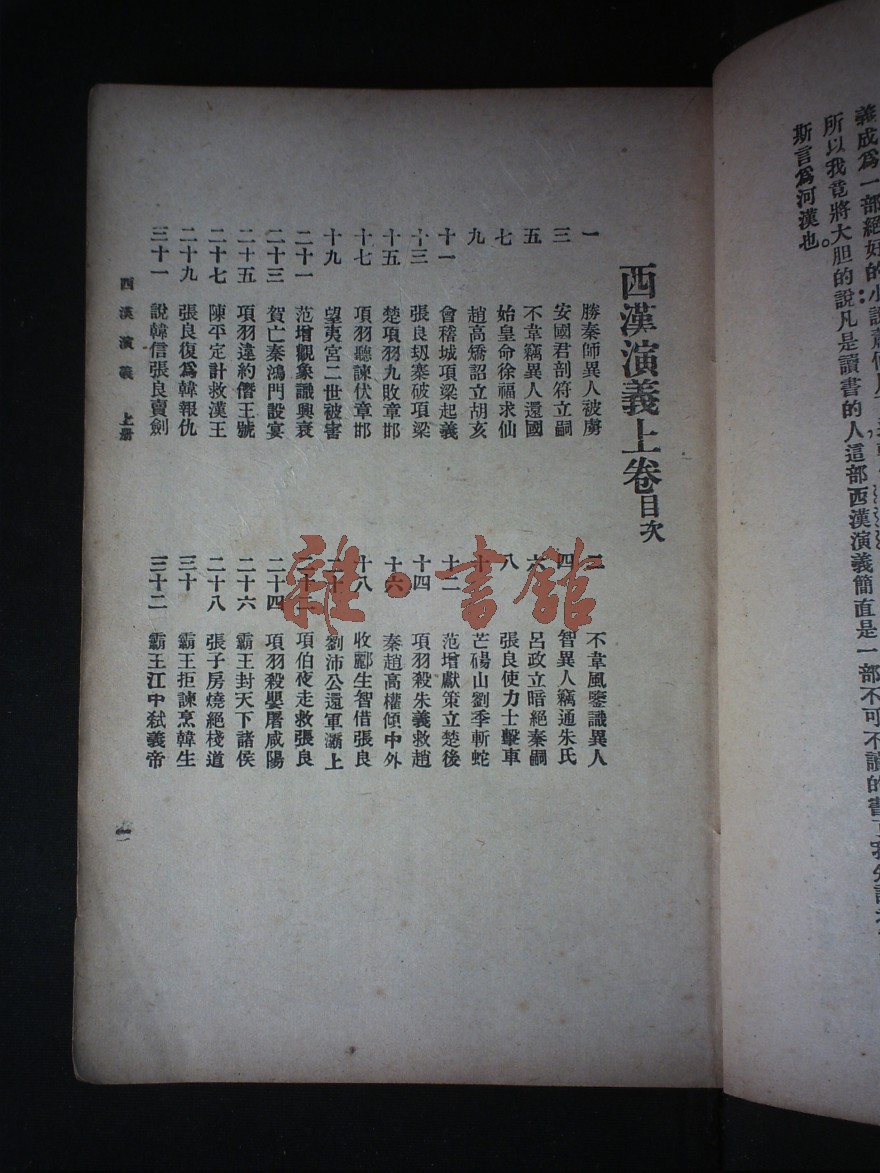 義成爲一部絕好的小說
所以我竟將大胆的說凡是讀書的人這部西漢演義簡直是一部不可不讀的書了
斯言爲河漢也。
西漢演義上卷目次
一 勝秦師異人被虜
二 不韋風鑒識異人
三 安國君剖符立嗣
四 智異人竊通朱氏
五 不韋竊異人還國
六 呂政立暗絕秦嗣
七 始皇命徐福求仙
八 張良使力士擊車
九 趙高矯詔立胡亥
十 芒碭山劉季斬蛇
十一 會稽城項梁起義
十二 范增獻策立楚後
十三 張良刼寨破項梁
十四 項羽殺朱義救趙
十五 楚項羽九敗章邯
十六 秦趙高權傾中外
十七 項羽聽諫伏章邯
十八 收酈生智借張良
十九 望夷宮二世被害
二十 劉沛公還軍灞上
二十一 范增觀象識興衰
二十二 項伯夜走救張良
二十三 賀亡秦鴻門設宴
二十四 項羽殺嬰屠咸陽
二十五 項羽違約僭王號
二十六 霸王封天下諸侯
二十七 陳平定計救漢王
二十八 張子房燒絕棧道
二十九 張良復爲韓報仇
三十 霸王拒諫烹韓生
三十一 說韓信張良賣劍
三十二 霸王江中弑義帝
西漢演義 上册
一
雜·書館